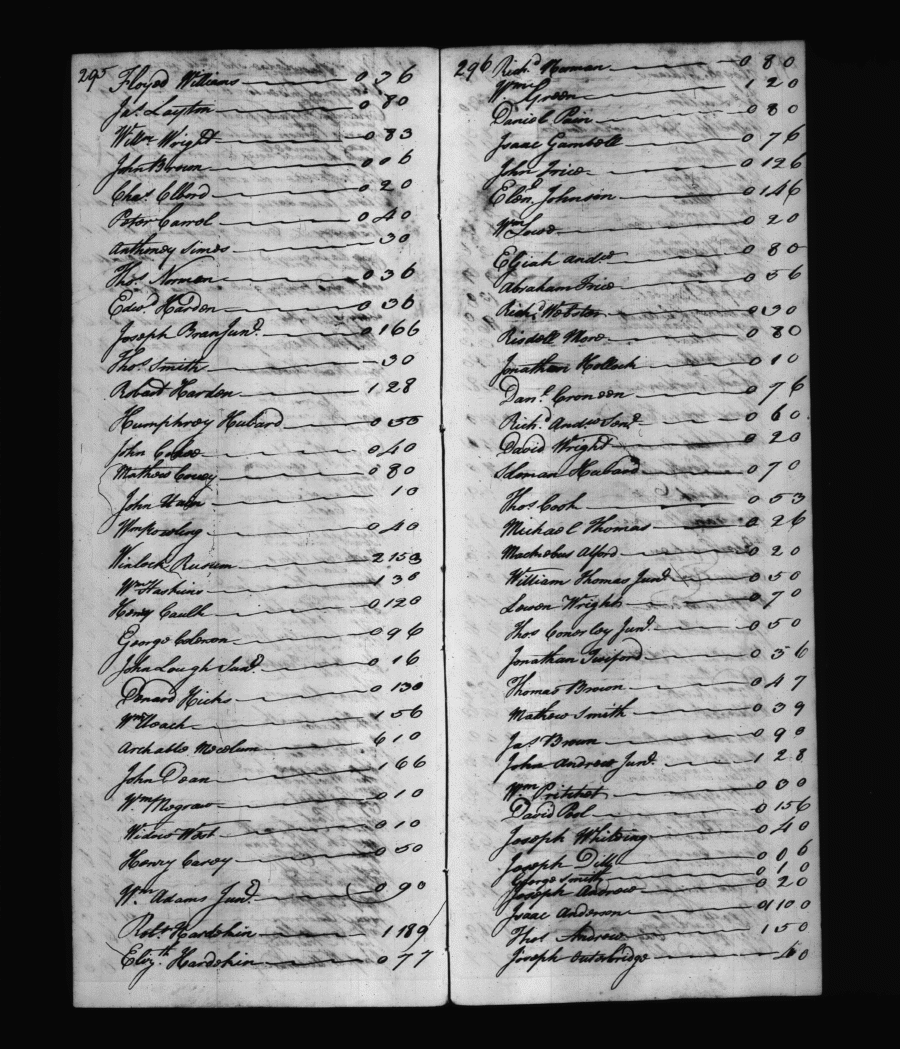 295
Floyed Williams 0 3 6
Jas. Layton 0 8 0
Willm Wright 0 8 3
John Brown 0 0 6
Chas. Elbord 0 2 0
Peter Carrol 0 4 0
Anthoney Simes 3 0
Thos. Norman 0 3 6
Edwd. Harden 0 3 6
Joseph Bran Junr. 0 16 6
Thos Smith 3 0
Robart Harden 1 2 8
Humphrey Hubard 0 5 5
John 0 4 0
Mathew 0 8 0
John 1 0
Wm Rowling 0 4 0
Winlock Rusum 2 15 3
Wm Haskins 1 3
Henry Caulk 0 12 0
George Coleson 0 9 6
John Lough Junr. 0 1 6
Denard Hicks 0 13 0
Wm Roach 1 5 6
Archable Mecolum 6 1 0
John Dean 1 6 6
Wm. 0 1 0
Widow West 0 1 0
Henry Carey 0 5 0
Wm. Adams Junr. 0 9 0
Robt. Hardikin 1 18 9
Elizth. Hardikin 0 7 7
296
Richd. Norman 0 8 0
Wm. Green 1 2 0
Daniel Pain 0 8 0
Isaac Gambell 0 7 6
John Price 0 12 6
Johnson 0 14 6
Wm Lowe 0 2 0
Elijah Andrw 0 8 0
Abraham Price 0 5 6
Richd. Webster 0 13 0
Risdell More 0 8 0
Jonathan Hollock 0 1 0
Danl. Croneen 0 7 6
Richd. Andrw Senr. 0 6 0
David Wright 0 2 0
Soloman Hubard 0 7 0
Thos. Cook 0 5 3
Michael Thomas 0 2 6
Alford 0 2 0
William Thomas Junr 0 5 0
Leven Wright 0 7 0
Thos Conerley Junr. 0 5 0
Jonathan Twiford 0 5 6
Thomas Brown 0 4 7
Mathew Smith 0 3 9
Jas. Brown 0 9 0
John Andrew Junr. 1 2 8
Wm. Pritchet 0 3 0
David Pool 0 15 6
Joseph Whiteing 0 4 0
Joseph Dill 0 0 6
George Smith 0 1 0
Joseph Andrew 0 2 0
Isaac Anderson 0 10 0
Thos. Andrew 1 5 0
Joseph Outerbridge 0